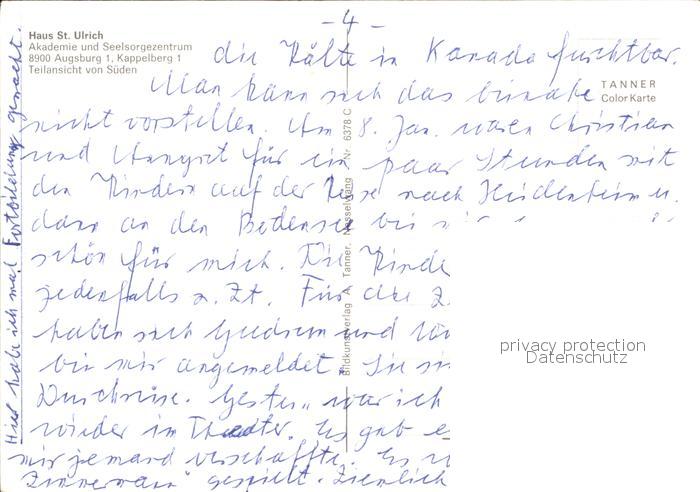 - 4 -
Haus St. Ulrich
Akademie und Seelsorgezentrum
8900 Augsburg 1, Kappelberg 1
Teilansicht von Süden
TANNER
Color Karte
die Kälte in Kanada furchtbar.
Man kann sich das beinahe
nicht vorstellen. Am 8. Jan. waren Christian
und Anngret für ein paar Stunden mit
den Kindern auf der Reise nach Heidenheim u.
dann an den Bodensee bei
schön für mich. Die Kinde
jedenfalls z. Zt. Für die
haben sich Gudrun und
bei mir angemeldet. Sie
Gestern war ich
wieder im Theater. Es gab
mir jemand verschaffte. Es
Zimmermann" gespielt. Ziemlich
Hier habe ich mal Fortbildung gemacht.
Bildkunstverlag A. Tanner, Nesselwang Nr. 6378 C
privacy protection
Datenschutz